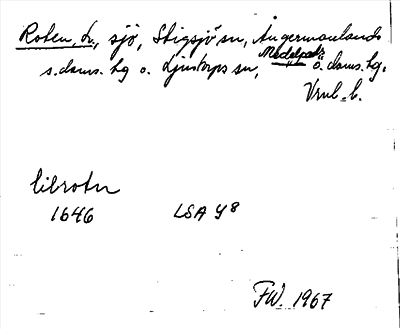 Roten, L., sjö, Stigsjö sn, Ångermanlands
s. doms. hg o. Ljustorps sn, Medelpads ö. doms. hg.
Vrul. b.
librotn
1646 LSA Y8
FW. 1967